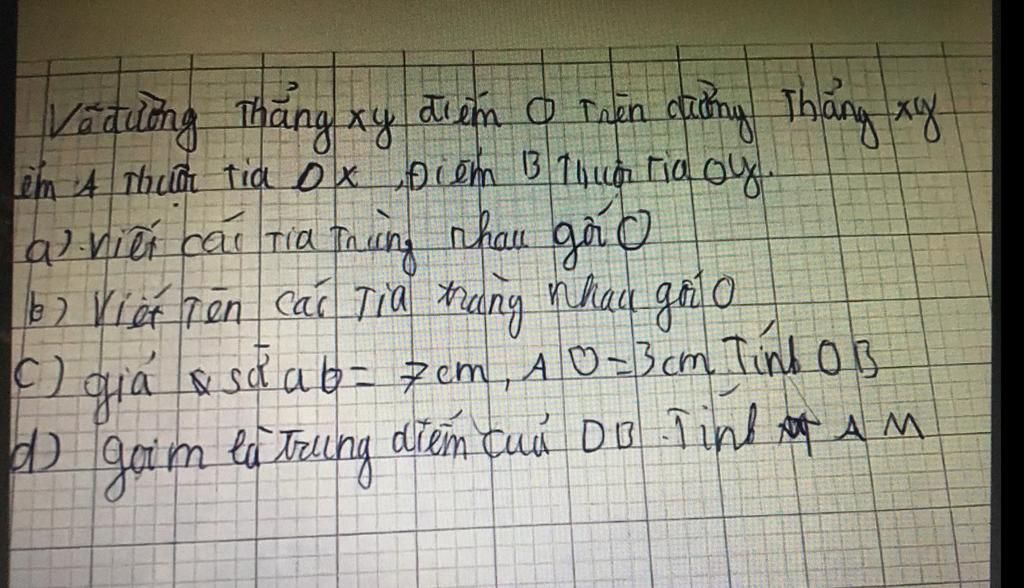 Vẽ đường Thẳng xy điểm O Trên đường Thẳng xy
ểm A Thuộc tia Ox, Điểm B Thuộc Tia Oy.
a) viết các Tia Trùng nhau gốc O
b) Viết Tên các Tia trùng nhau gốc O
c) giả sử ab = 7cm, AO = 3cm Tính OB
d) gọi m là Trung điểm của OB. Tính AM